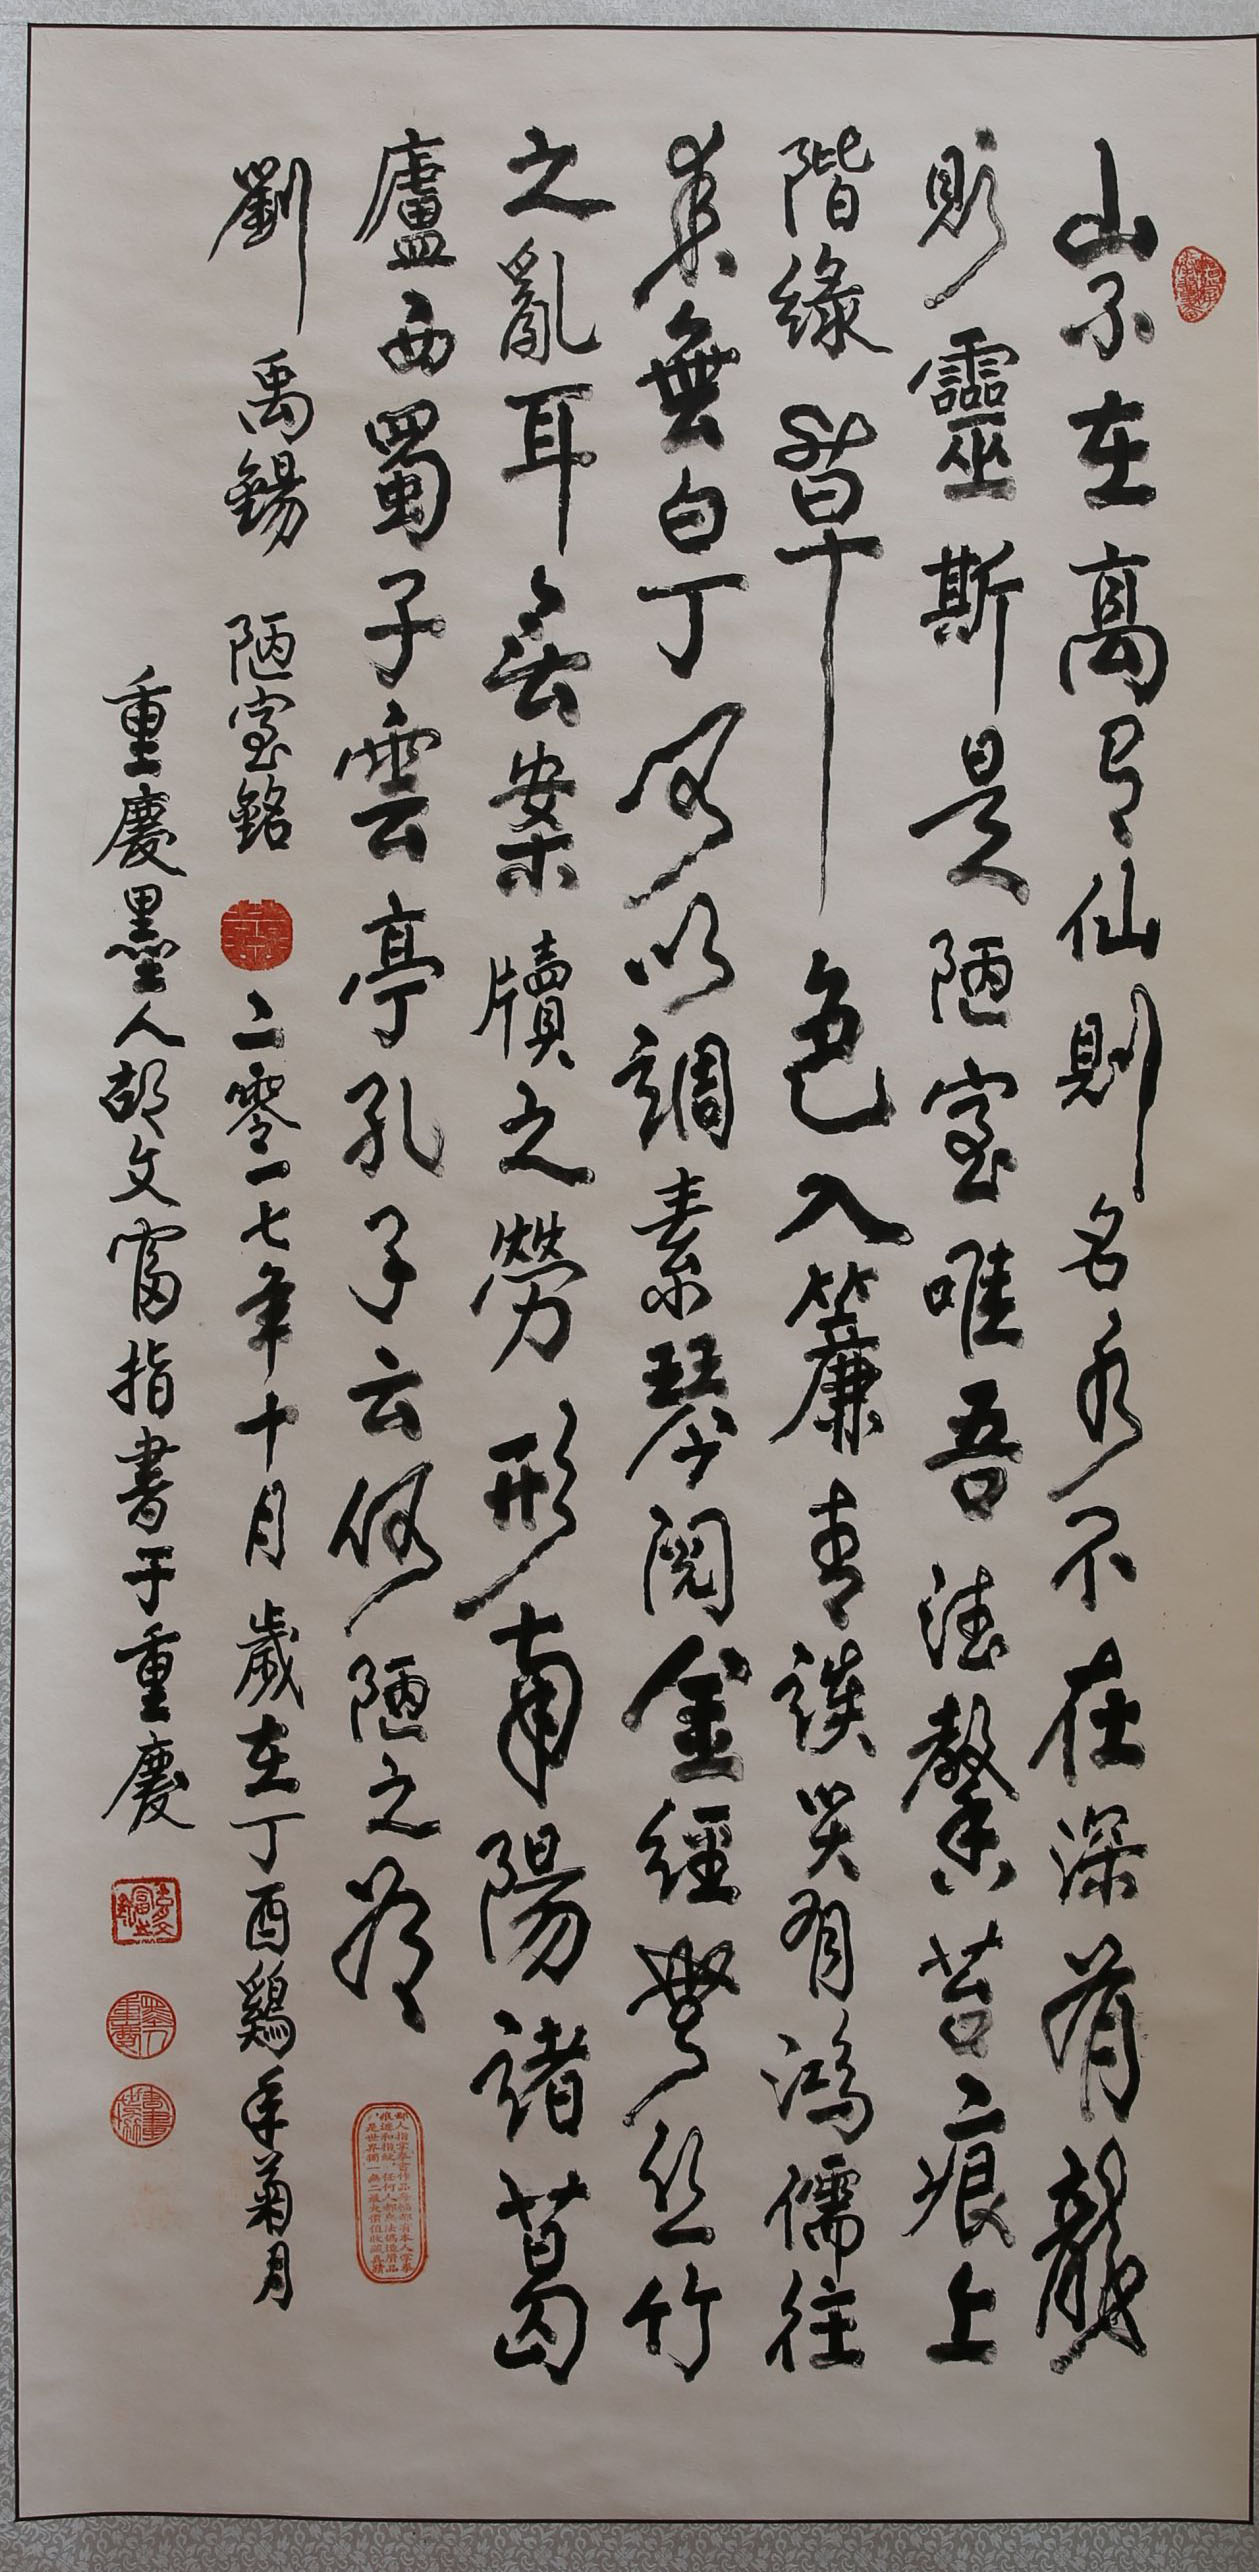 山不在高有仙則名水不在深有龍
則靈斯是陋室唯吾德馨苔痕上
階綠草色入簾青談笑有鴻儒往
來無白丁可以調素琴閱金經無絲竹
之亂耳無案牘之勞形南陽諸葛
廬西蜀子雲亭孔子云何陋之有
劉禹錫 陋室銘 二零一七年十月歲在丁酉鷄年菊月
重慶墨人胡文富指書于重慶